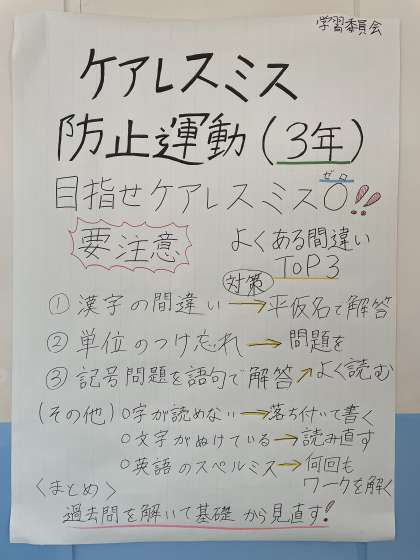 学習委員会
ケアレスミス
防止運動(3年)
目指せケアレスミス0!!
ゼロ
要注意
よくある間違い
TOP3
対策
①漢字の間違い→平仮名で解答
②単位のつけ忘れ→問題を
③記号問題を語句で解答↗よく読む
(その他)○字が読めない→落ち付いて書く
○文字がぬけている→読み直す
○英語のスペルミス→何回も
ワークを解く
<まとめ>
過去問を解いて基礎から見直す!